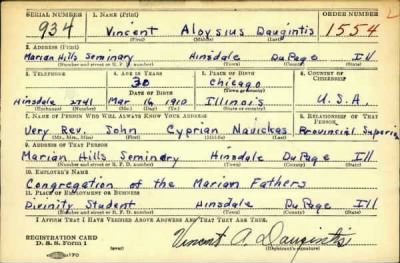 SERIAL NUMBER 1. NAME (Print) ORDER NUMBER
934 Vincent Aloysius Daugintis 1554
(First) (Middle) (Last)
2. ADDRESS (Print)
Marian Hills Seminary Hinsdale DuPage Ill
(Number and street or R. F. D. number) (Town) (County) (State)
3. TELEPHONE 4. AGE IN YEARS 5. PLACE OF BIRTH 6. COUNTRY OF CITIZENSHIP
30 Chicago
DATE OF BIRTH (Town or county)
Hinsdale 2741 Mar 16 1910 Illinois U.S.A.
(Exchange) (Number) (Mo.) (Day) (Yr.) (State or country)
7. NAME OF PERSON WHO WILL ALWAYS KNOW YOUR ADDRESS 8. RELATIONSHIP OF THAT PERSON
Very Rev. John Cyprian Navickas Provincial Superior
(Mr., Mrs., Miss) (First) (Middle) (Last)
9. ADDRESS OF THAT PERSON
Marian Hills Seminary Hinsdale DuPage Ill
(Number and street or R. F. D. number) (Town) (County) (State)
10. EMPLOYER'S NAME
Congregation of the Marian Fathers
11. PLACE OF EMPLOYMENT OR BUSINESS
Divinity Student Hinsdale DuPage Ill
(Number and street or R. F. D. number) (Town) (County) (State)
I AFFIRM THAT I HAVE VERIFIED ABOVE ANSWERS AND THAT THEY ARE TRUE.
REGISTRATION CARD
D. S. S. Form 1
Vincent A. Daugintis
(Registrant's signature)